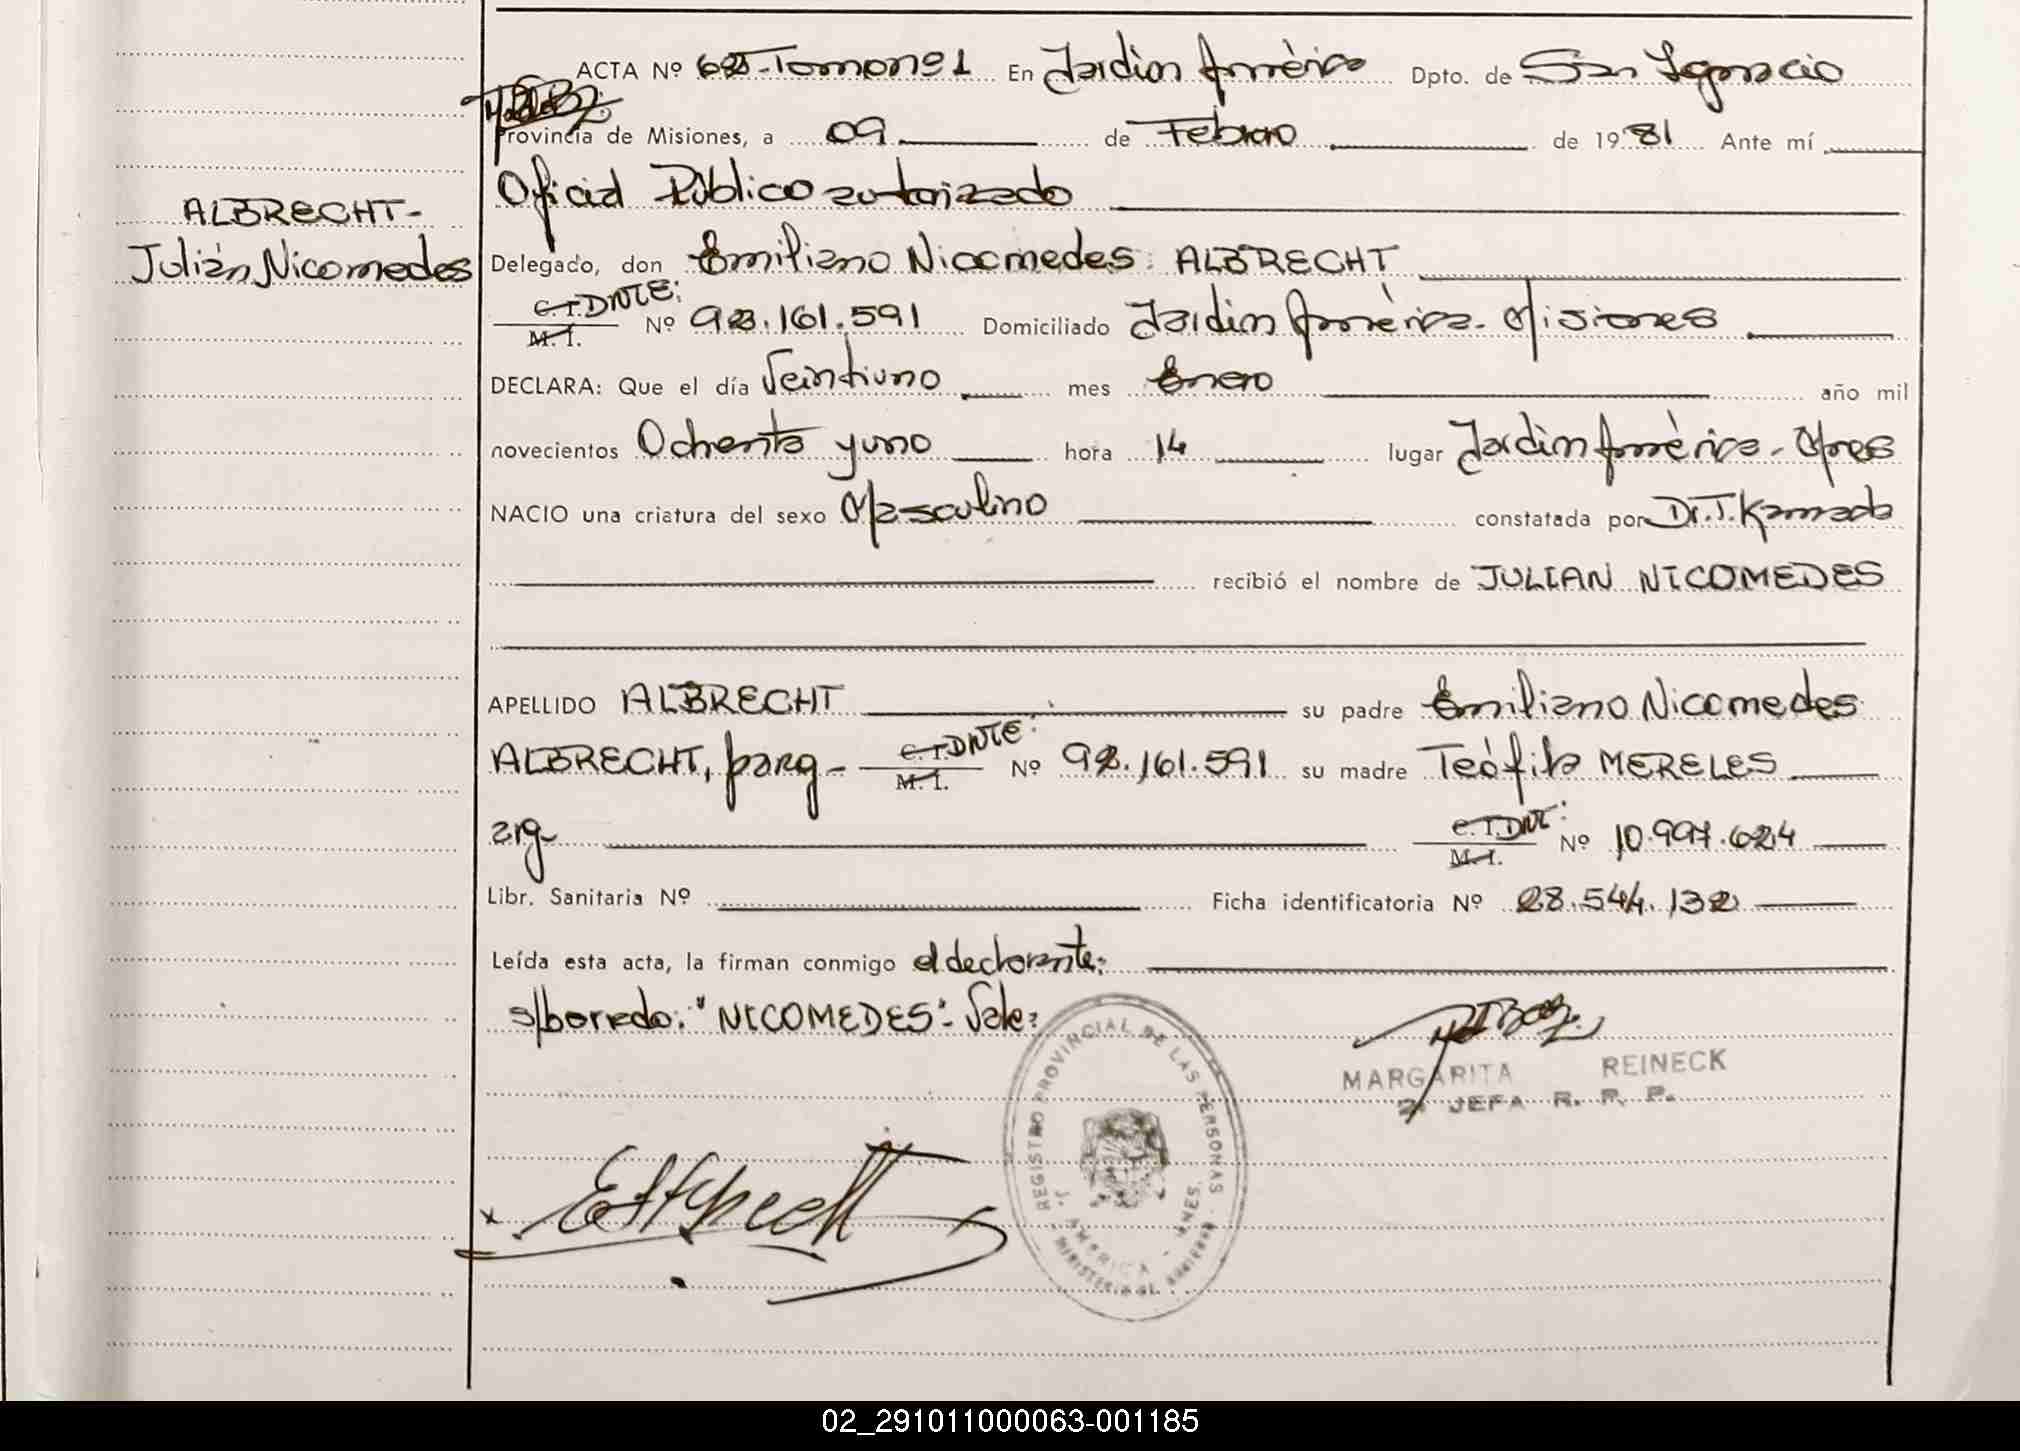 ACTA Nº 685-Tomo nº 1 En Jardín América Dpto. de San Ignacio
Provincia de Misiones, a 09 de Febrero de 1981 Ante mí
Oficial Público autorizado
ALBRECHT-
Julián Nicomedes
Delegado, don Emiliano Nicomedes ALBRECHT
C.I. DNI E:
M.I. Nº 92.161.591 Domiciliado Jardín América - Misiones
DECLARA: Que el día Veintiuno mes Enero año mil
novecientos Ochenta y uno hora 14 lugar Jardín América - Mnes
NACIO una criatura del sexo Masculino constatada por Dr. T. Kamada
recibió el nombre de JULIAN NICOMEDES
APELLIDO ALBRECHT su padre Emiliano Nicomedes
ALBRECHT, parg- C.I. DNI E: M.I. Nº 92.161.591 su madre Teófila MERELES
arg- C.I. DNI: M.I. Nº 10.997.624
Libr. Sanitaria Nº Ficha identificatoria Nº 28.544.132
Leída esta acta, la firman conmigo el declarante:
s/borrado: "NICOMEDES"- Vale:
MARGARITA REINECK
2ª JEFA R. P. P.
REGISTRO PROVINCIAL DE LAS PERSONAS
MINISTERIO DE GOBIERNO
J. AMERICA - MNES.
02_291011000063-001185